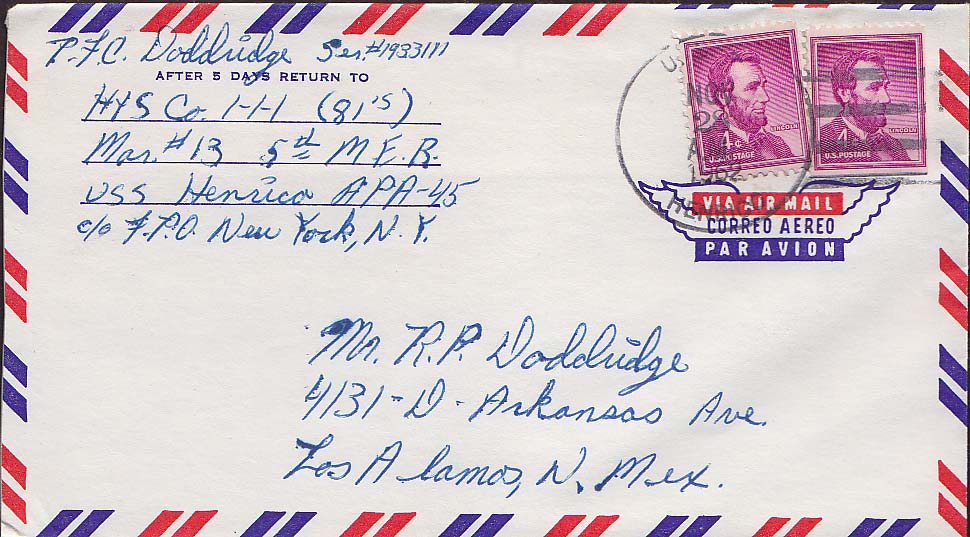 P.F.C. Doddridge Ser.#1933111
AFTER 5 DAYS RETURN TO
H&S Co. 1-1-1 (81's)
Mar. #13 5th M.E.B.
USS Henrico APA-45
c/o F.P.O. New York, N.Y.
NOV
29
1962
HENRICO
LINCOLN
4¢
U.S. POSTAGE
LINCOLN
4¢
U.S. POSTAGE
VIA AIR MAIL
CORREO AEREO
PAR AVION
Mr. R.P. Doddridge
4131-D-Arkansas Ave.
Los Alamos, N. Mex.